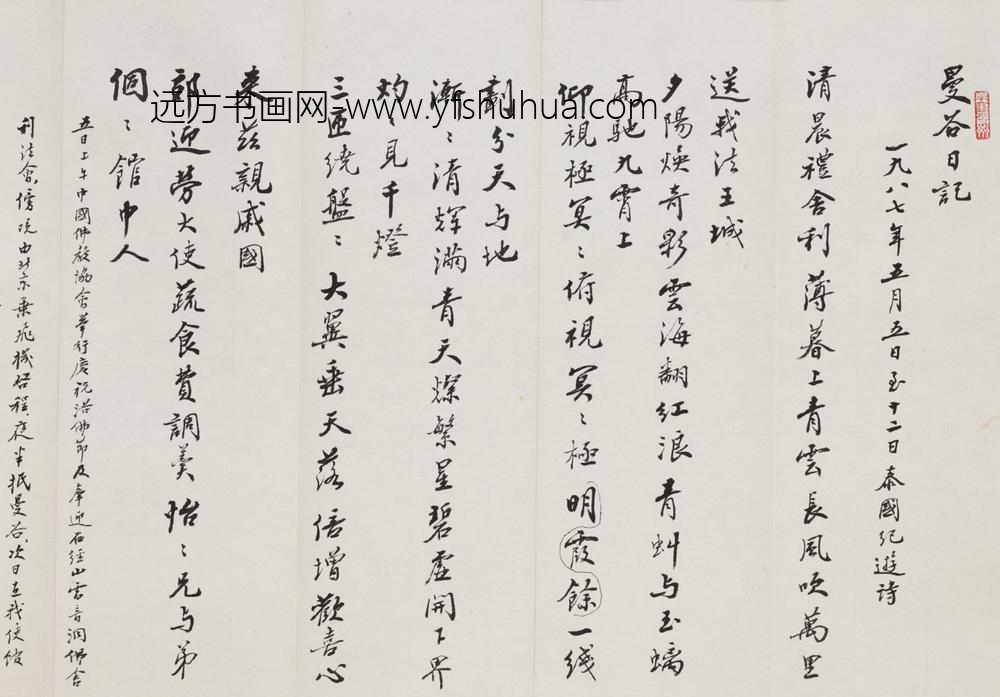 曼谷日記
一九八七年五月五日至十二日泰國紀遊詩
清晨禮舍利薄暮上青雲長風吹萬里
送我法王城
夕陽煥奇彩雲海翻紅浪青虯与玉螭
高馳九霄上
仰視極冥〻俯視冥〻極明霞餘一线
割分天与地
漸〻清輝滿青天燦繁星碧虛開下界
灼〻見千燈
三匝繞盤〻大翼垂天落倍增歡喜心
來兹親戚國
郊迎勞大使蔬食費調羹怡〻兄与弟
個〻館中人
五日上午中國佛教協會舉行慶祝浴佛節及奉迎石經山雷音洞佛舍
利法會傍晚由北京乘飛機啓程夜半抵曼谷次日在我使館
远方书画网 www.yfshuhua.com